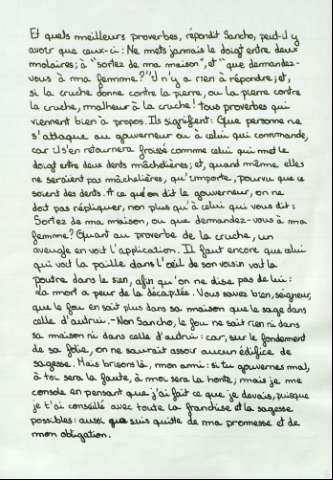 Et quels meilleurs proverbes, répondit Sancho, peut-il y
avoir que ceux-ci: Ne mets jamais le doigt entre deux
molaires; à "sortez de ma maison", et "que demandez-
vous à ma femme?" il n'y a rien à répondre; et,
si la cruche donne contre la pierre, ou la pierre contre
la cruche, malheur à la cruche! tous proverbes qui
viennent bien à propos. Ils signifient: Que personne ne
s'attaque au gouverneur ou à celui qui commande,
car il s'en retournera froissé comme celui qui met le
doigt entre deux dents mâchelières; et, quand même elles
ne seraient pas mâchelières, qu'importe, pourvu que ce
soient des dents. A ce qu'on dit le gouverneur, on ne
doit pas répliquer, non plus qu'à celui qui vous dit:
Sortez de ma maison, ou que demandez-vous à ma
femme? Quant au proverbe de la cruche, un
aveugle en voit l'application. Il faut encore que celui
qui voit la paille dans l'œil de son voisin voit la
poutre dans le sien, afin qu'on ne dise pas de lui:
La mort a peur de la décapitée. Vous savez bien, seigneur,
que le fou en sait plus dans sa maison que le sage dans
celle d'autrui. - Non Sancho, le fou ne sait rien ni dans
sa maison ni dans celle d'autrui: car, sur le fondement
de sa folie, on ne saurait assoir aucun édifice de
sagesse. Mais brisons là, mon ami: si tu gouvernes mal,
à toi sera la faute, à moi sera la honte, mais je me
console en pensant que j'ai fait ce que je devais, puisque
je t'ai conseillé avec toute la franchise et la sagesse
possibles: aussi suis quitte de ma promesse et de
mon obligation.